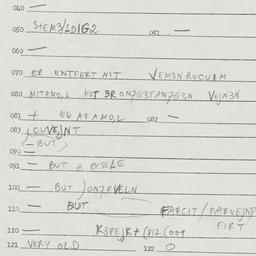 040 —
050 STEM3/1DIG2 051 —
060 —
070 ER ENTFERT NIT VEM3N RUCUIM
080 MITAMO,L HOT 3R ON7G3FAN7G3N VEJN3N
081 + EN AFAMO,L 082 —
083 (GUVEJNT
(— BUT)
090 —
091 — BUT A BISELE
100 — BUT )ON7KVELN
110 — BUT FARCIT / FARVEJNT
FIRT
120 — K3PEJK+ (812 (009
121 VERY OLD 122 0